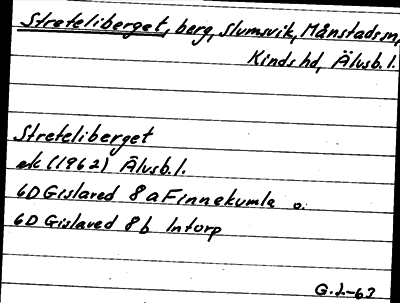 Streteliberget, berg, Slumsvik, Månstads sn,
Kinds hd, Älvsb. l.
Streteliberget
ek (1962) Älvsb. l.
6D Gislaved 8a Finnekumla o.
6D Gislaved 8b Intorp
G. L-63